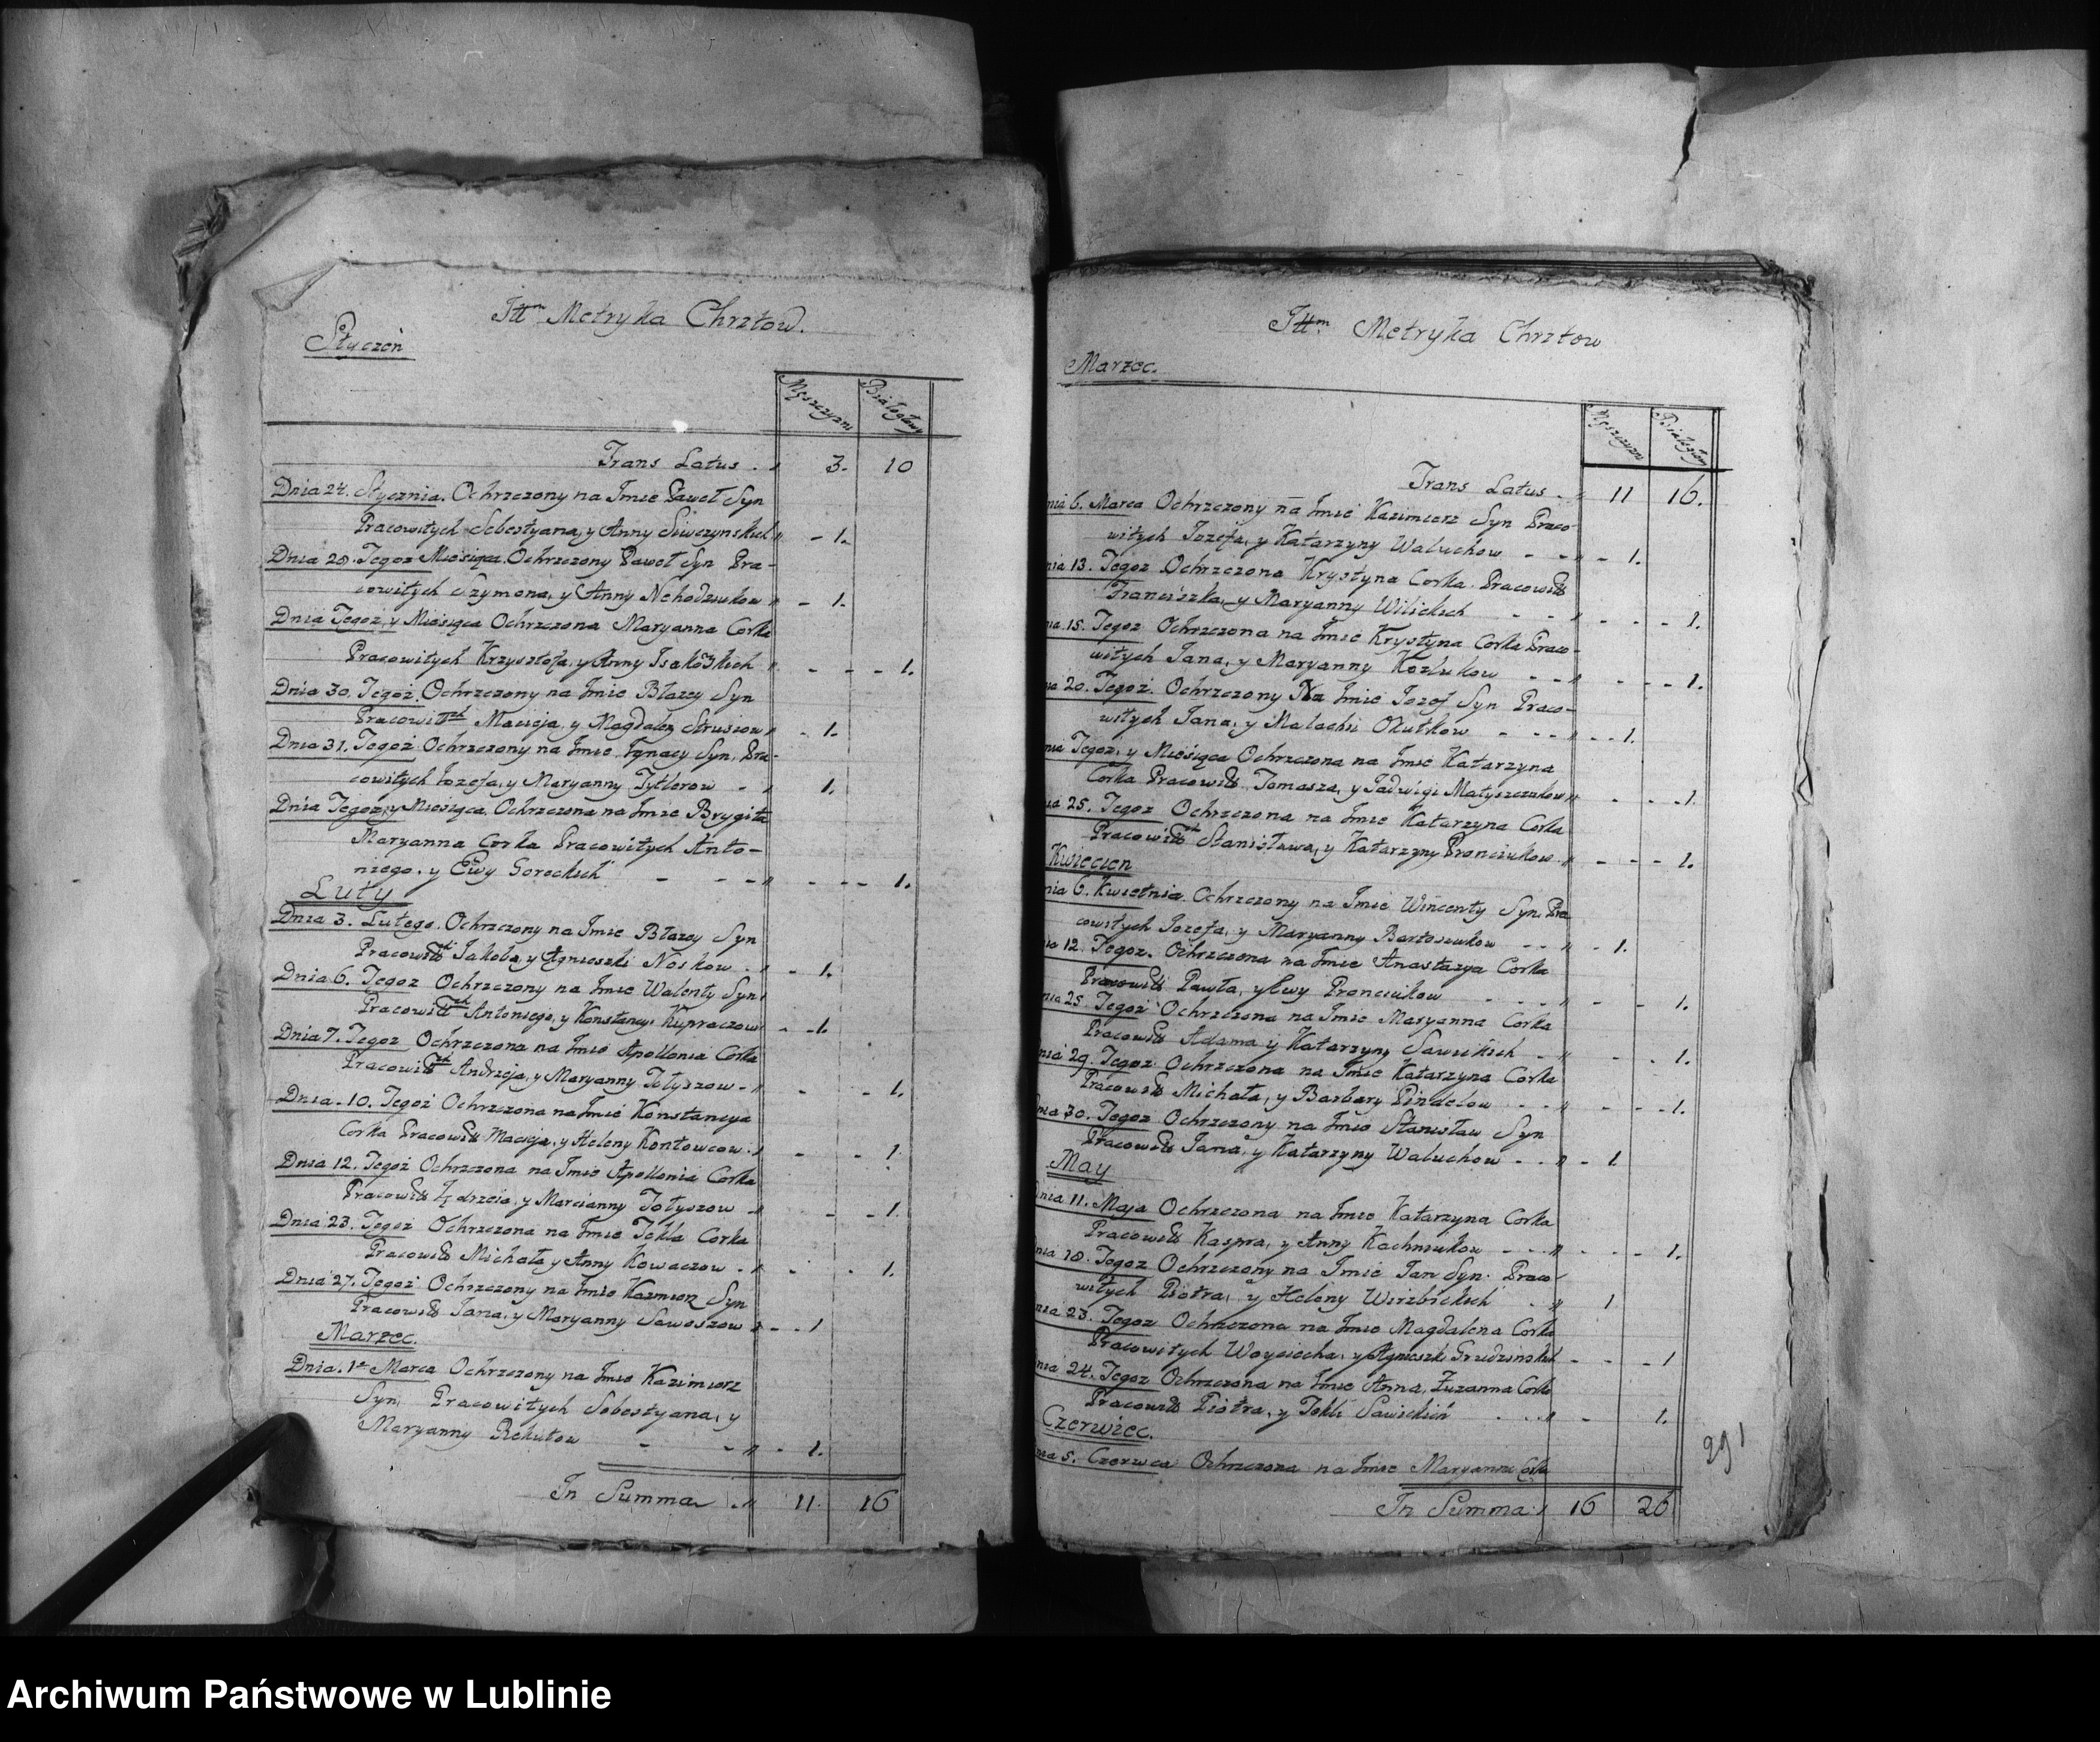 Ittm Metryka Chrztow.
Styczeń
Męszczyzni Białogłowy
Trans Latus 3. 10
Dnia 24. Stycznia. Ochrzczony na Jmie Paweł Syn
Pracowitych Sebestyana, y Anny - 1.
Dnia 29. Tegoz Miesiąca Ochrzczony Paweł Syn Pra-
cowitych Szymona, y Anny - 1.
Dnia Tegoż, y Miesiąca Ochrzczona Maryanna Corka
Pracowitych Krzysztofa, y Anny - - - 1.
Dnia 30. Tegoż. Ochrzczony na Jmie Błazey Syn
Pracowitch Macieja, y Magdaleny Strusiow - 1.
Dnia 31. Tegoż Ochrzczony na Jmie Jgnacy Syn, Pra-
cowitych Jozefa, y Maryanny Tytlorow - 1.
Dnia Tegoz, y Miesiąca Ochrzczona na Jmie Brygita
Maryanna Corka Pracowitych Anto-
niego, y Ewy Goreckich - - - - - - 1.
Luty
Dnia 3. Lutego. Ochrzczony na Jmie Błazey Syn
Pracowitch Jakoba, y Agnieszki Noskow. - 1.
Dnia 6. Tegoz Ochrzczony na Jmie Walenty Syn
Pracowitch Antoniego, y Konstancyi Kupraczow - - 1.
Dnia 7. Tegoz Ochrzczona na Jmie Apollonia Corka
Pracowitch Andrzeja, y Maryanny Tołyszow - - - 1.
Dnia. 10. Tegoż Ochrzczona na Jmie Konstancya
Corka Pracowitch Macieja, y Heleny Kontowcow. - - 1
Dnia 12. Tegoż Ochrzczona na Jmie Apollonia Corka
Pracowitch y Marcianny Tołyszow - - - 1.
Dnia 23. Tegoż Ochrzczona na Jmie Tekla Corka
Pracowitch Michała y Anny Kowaczow. - - 1.
Dnia 27. Tegoż Ochrzczony na Jmie Kazmierz Syn
Pracowitch Jana, y Maryanny Sawoszow - - 1
Marzec.
Dnia. 1. Marca Ochrzczony na Jmie Kazimierz
Syn, Pracowitych Sebestyana, y
Maryanny Rekutow - - - 1.
In Summa 11. 16
Ittm Metryka Chrztow
Marzec.
Męszczyzni Białogłowy
Trans Latus. 11 16.
nia 6. Marca Ochrzczony na Jmie Kazimierz Syn Praco-
witych Jozefa, y Katarzyny Waluchow - - - 1.
nia 13. Tegoz Ochrzczona Krystyna Corka Pracowitch
Franciszka, y Maryanny Wilickich - - - - - 1.
nia. 15. Tegoz Ochrzczona na Jmie Krystyna Corka Praco-
witych Jana, y Maryanny Kozlukow - - - - - 1.
nia 20. Tegoż. Ochrzczony Na Jmie Jozef Syn Praco-
witych Jana, y Malachii Okutkow - - - - - 1.
nia Tegoz, y Miesiąca Ochrzczona na Jmie Katarzyna
Corka Pracowitch Tomasza, y Jadwigi Matyszczukow - - - 1.
nia 25. Tegoz Ochrzczona na Jmie Katarzyna Corka
Pracowitch Stanisława, y Katarzyny Pronciukow - - - 1.
Kwiecien
nia 6. Kwietnia. Ochrzczony na Jmie Wincenty Syn Pra
cowitych Jozefa, y Maryanny Bartoszukow - - - 1.
nia 12. Tegoz. Ochrzczona na Jmie Anastazya Corka
Pracowitch Pawła, y Ewy Pronciukow - - - - - 1.
nia 25 Tegoż Ochrzczona na Jmie Maryanna Corka
Pracowitch Adama y Katarzyny Sawickich - - - 1.
nia 29. Tegoz Ochrzczona na Jmie Katarzyna Corka
Pracowitch Michała, y Barbary Pindelow - - - - - 1.
nia 30. Tegoz Ochrzczony na Jmie Stanisław Syn
Pracowitch Jana, y Katarzyny Waluchow - - - 1
May
nia 11. Maja Ochrzczona na Jmie Katarzyna Corka
Pracowitch Kaspra, y Anny Kachniukow - - - - - 1.
nia 18. Tegoz Ochrzczony na Jmie Jan Syn Praco-
witych Piotra, y Heleny Wirzbickich 1
nia 23. Tegoz Ochrzczona na Jmie Magdalena Corka
Pracowitych Woyciecha, y Agnieszki Grudzinskich - - - 1
nia 24. Tegoz Ochrzczona na Jmie Anna, Zuzanna Corka
Pracowitch Piotra, y Tekli Sawickich - 1.
Czerwiec.
nia 5. Czerwca Ochrzczona na Jmie Maryanna Corka
In Summa 16 26
291
Archiwum Państwowe w Lublinie